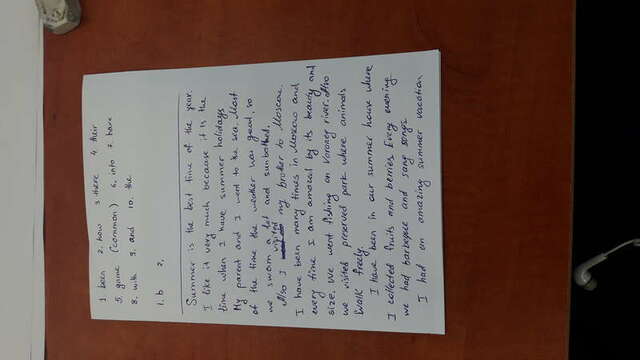 1. been 2. how 3 there 4. their
5. game (common) 6. into 7. have
8. with 9. and 10. the
1. b 2,
Summer is the best time of the year.
I like it very much because it is the
time when I have summer holidays
My parent and I went to the sea. Most
of the time the weather was good, so
we swam a lot and sunbathed.
Also I visited my brother to Moscow.
I have been many times in Moscow and
every time I am amazed by its beauty and
size. We went fishing on Voroney river. Also
we visited preserved park where animals
walk freely.
I have been in our summer house where
I collected fruits and berries Every evening
we had barbeque and sang songs
I had an amazing summer vacation